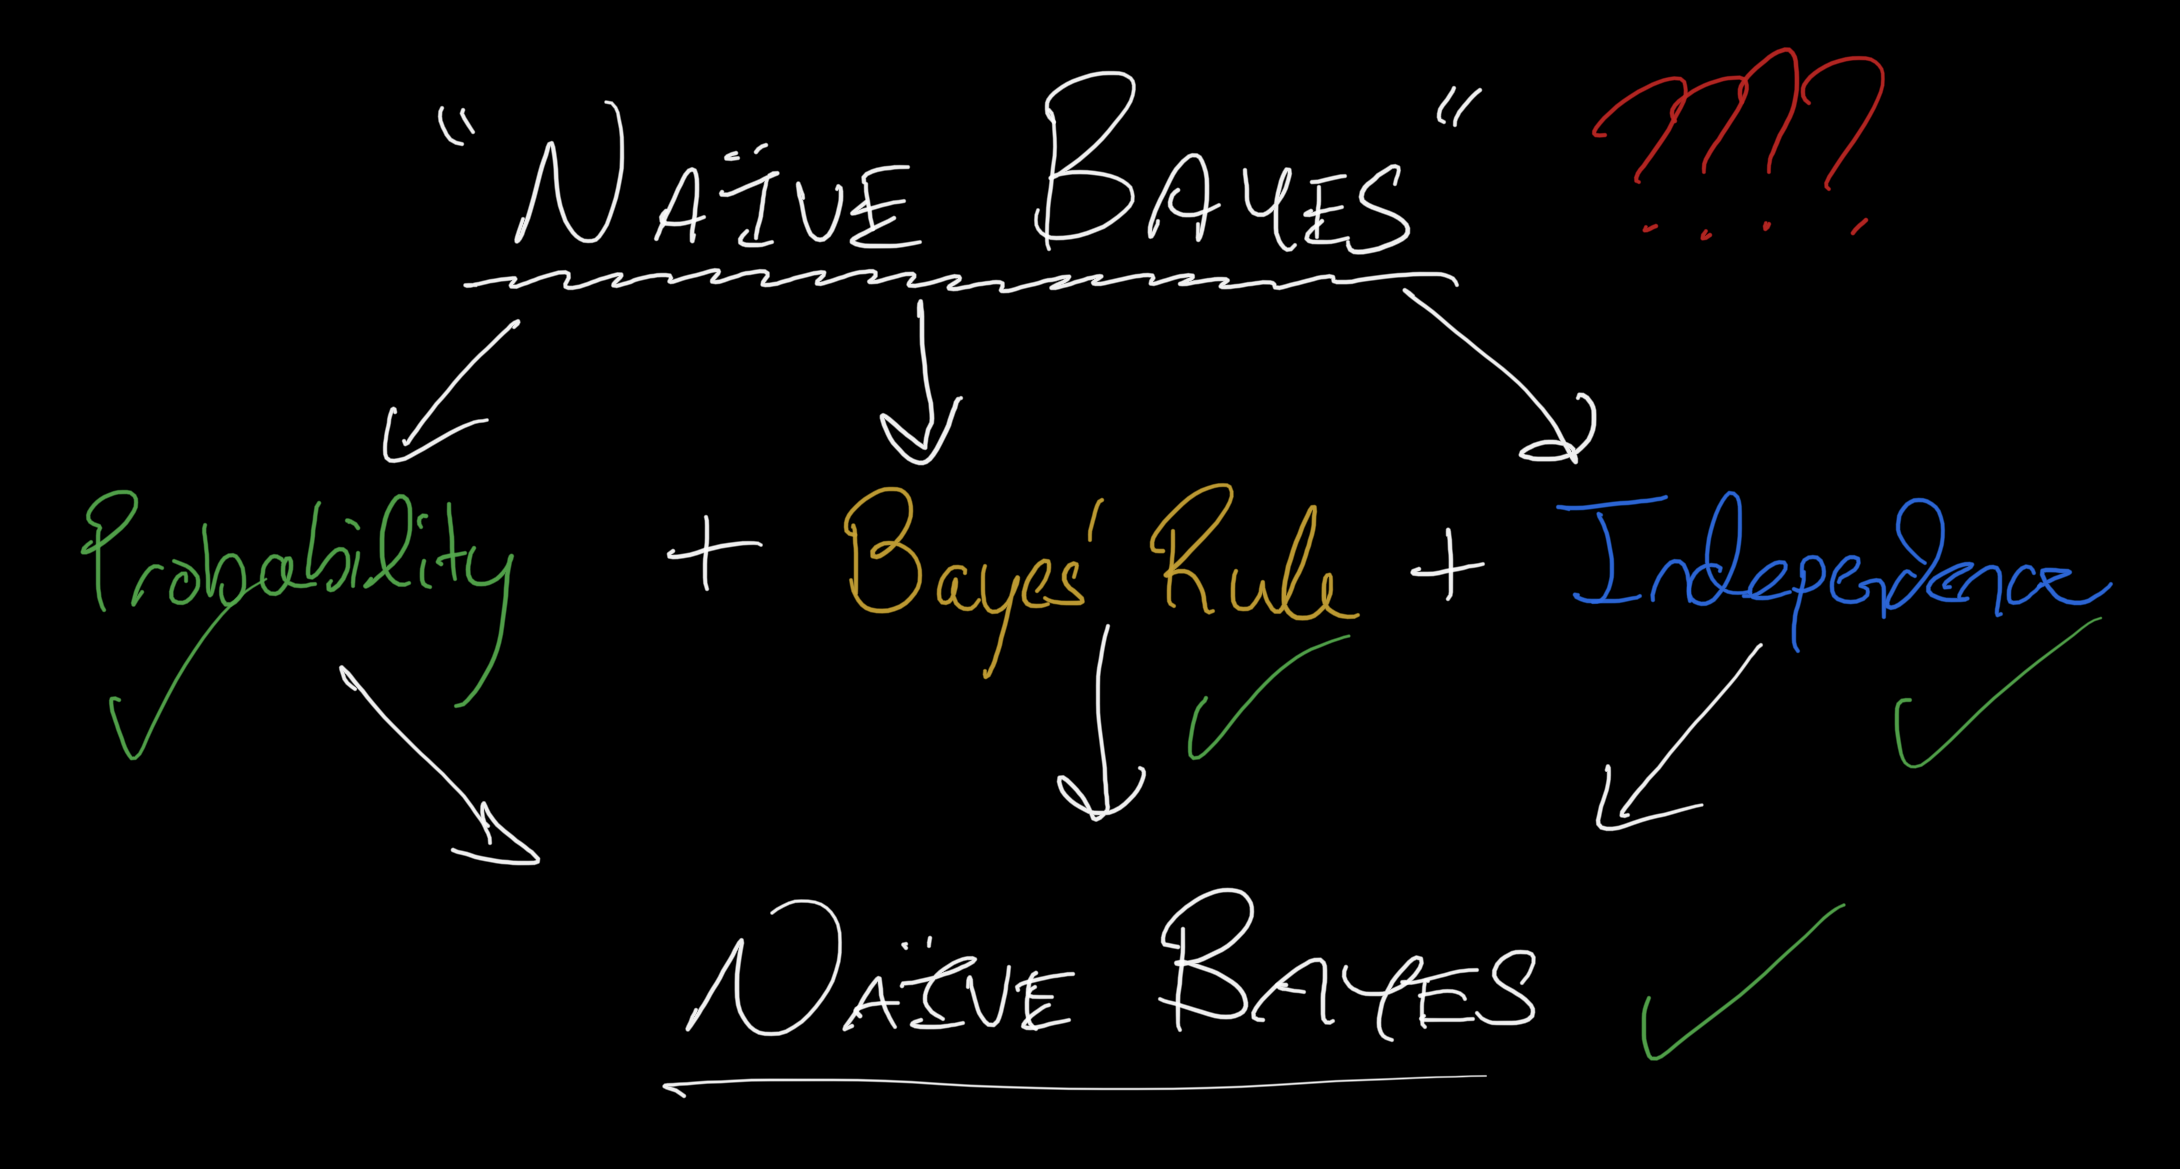 "NAÏVE BAYES" ????
Probability + Bayes' Rule + Independence
NAÏVE BAYES